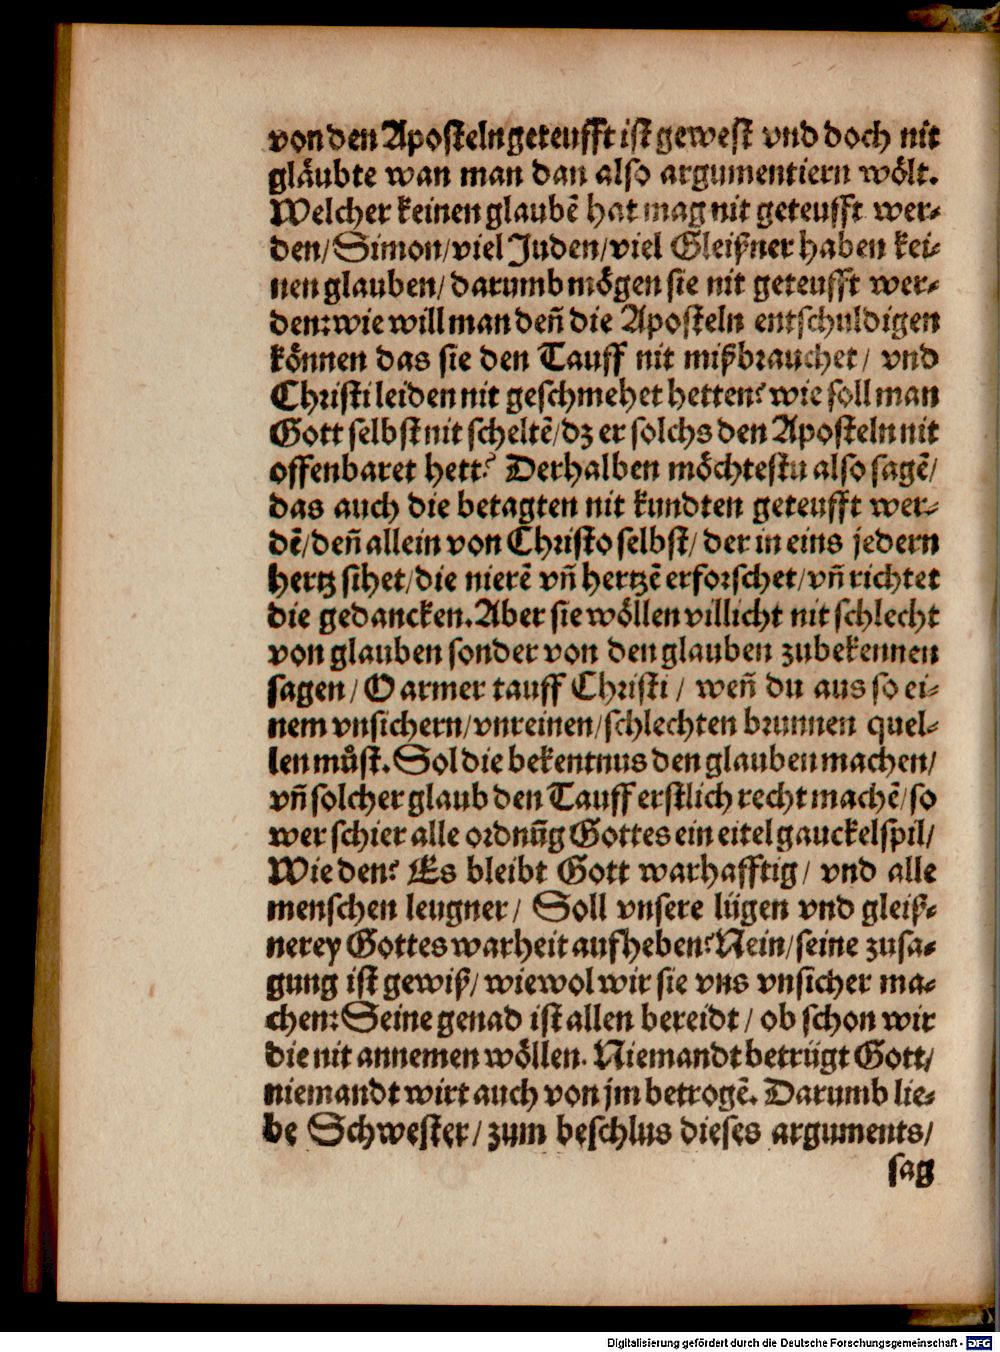 von den Aposteln geteufft ist gewest vnd doch nit
gläubte wan man dan also argumentiern wölt.
Welcher keinen glaubē hat mag nit geteufft wer⸗
den/Simon/viel Juden/viel Gleißner haben kei⸗
nen glauben/darumb mögen sie nit geteufft wer⸗
den:wie will man deñ die Aposteln entschuldigen
können das sie den Tauff nit mißbrauchet/ vnd
Christi leiden nit geschmehet hetten? wie soll man
Gott selbst nit scheltē/dz er solchs den Aposteln nit
offenbaret hett? Derhalben möchtestu also sagē/
das auch die betagten nit kundten geteufft wer⸗
dē/deñ allein von Christo selbst/ der in eins jedern
hertz sihet/die nierē vñ hertzē erforschet/vñ richtet
die gedancken. Aber sie wöllen villicht nit schlecht
von glauben sonder von den glauben zubekennen
sagen/ O armer tauff Christi/ weñ du aus so ei⸗
nem vnsichern/vnreinen/schlechten brunnen quel⸗
len můst. Sol die bekentnus den glauben machen/
vñ solcher glaub den Tauff erstlich recht machē/so
wer schier alle ordnũg Gottes ein eitel gauckelspil/
Wie den? Es bleibt Gott warhafftig/ vnd alle
menschen leugner/ Soll vnsere lügen vnd gleiß⸗
nerey Gottes warheit aufheben? Nein/seine zusa⸗
gung ist gewiß/ wiewol wir sie vns vnsicher ma⸗
chen: Seine genad ist allen bereidt/ ob schon wir
die nit annemen wöllen. Niemandt betriigt Gott/
niemandt wirt auch von jm betrogē. Darumb lie⸗
be Schwester/ zum beschlus dieses arguments/
sag
Digitalisierung gefördert durch die Deutsche Forschungsgemeinschaft - DFG